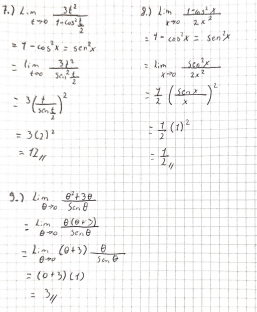 7.) Lim t→0 3t² / 1-cos² t/2
= 1 - cos² x = sen² x
= Lim t→0 3t² / sen² t/2
= 3 (t / sen t/2)²
= 3(2)²
= 12 //
8.) Lim x→0 1-cos² x / 2x²
= 1 - cos² x = sen² x
= Lim x→0 sen² x / 2x²
= 1/2 (sen x / x)²
= 1/2 (1)²
= 1/2 //
9.) Lim θ→0 θ²+3θ / sen θ
= Lim θ→0 θ(θ+3) / sen θ
= Lim θ→0 (θ+3) θ / sen θ
= (0+3) (1)
= 3 //